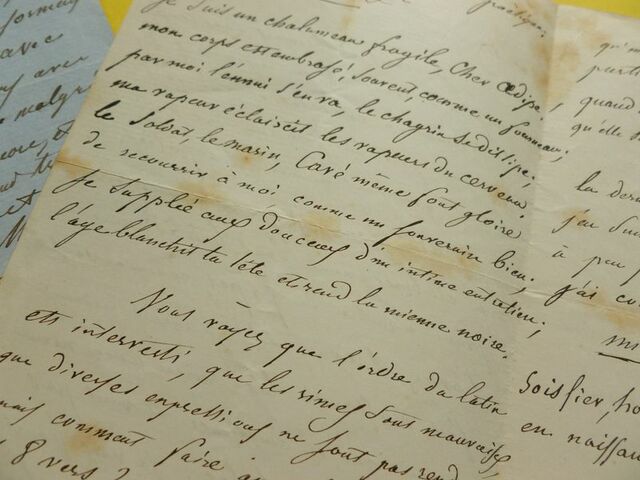 je suis un chalumeau fragile, cher Œdipe.
mon corps est embrasé, souvent, comme un fourneau;
par moi l'ennui s'en va, le chagrin se dissipe;
ma vapeur éclaircit les vapeurs du cerveau.
le Soldat, le marin, l'avé même font gloire
de recourir à moi, comme un souverain bien;
Je supplée aux douceurs d'un intime entretien;
l'age blanchit ta tête et rend la mienne noire.
Vous voyez que l'ordre du latin
est interverti, que les rimes sont mauvaises
que diverses expressions ne sont pas rend
mais comment faire
8 vers
avec
malgr
quand
qu'elle
la der
à peu
j'ai co
Sois fier
en naissan